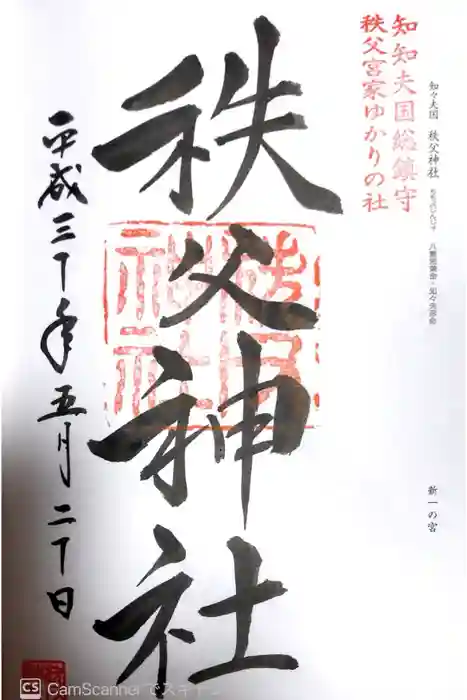 知々夫国 秩父神社 ちちぶじんじゃ
新一の宮
知知夫国総鎮守
秩父宮家ゆかりの社
秩父神社
秩父神社
平成三十年五月二十日
CS CamScannerでスキャン